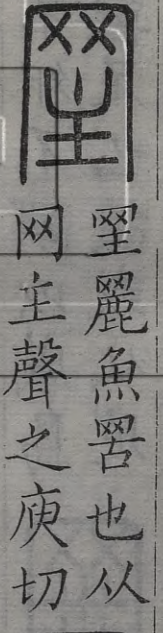 罜
罜䍡魚罟也从
网主聲之庾切